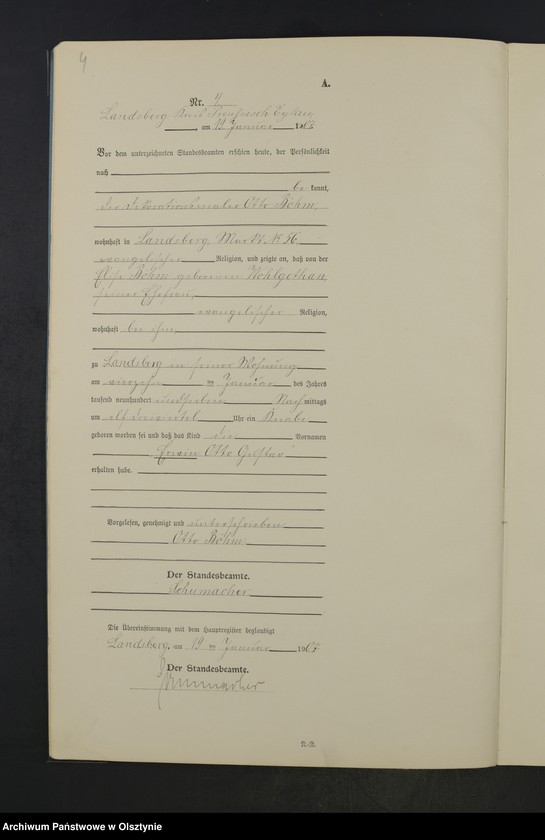 4
A.
Nr. 4
Landsberg Kreis Preußisch Eylau
, am 19 Januar 1907
Vor dem unterzeichneten Standesbeamten erschien heute, der Persönlichkeit
nach
be kannt,
der Dekorationsmaler Otto Böhm,
wohnhaft in Landsberg, Markt № 56
evangelischer Religion, und zeigte an, daß von der
Böhm geborenen Wohlgethan,
seiner Ehefrau,
evangelischer Religion,
wohnhaft bei ihm,
zu Landsberg in seiner Wohnung
am Januar des Jahres
tausend neunhundert und sieben Nach mittags
um elf Uhr ein Knabe
geboren worden sei und daß das Kind die Vornamen
Erwin Otto Gustav
erhalten habe.
Vorgelesen, genehmigt und unterschrieben
Otto Böhm
Der Standesbeamte.
Schumacher
Die Übereinstimmung mit dem Hauptregister beglaubigt
Landsberg, am 19 ten Januar 1907
Der Standesbeamte.
Schumacher
Archiwum Państwowe w Olsztynie